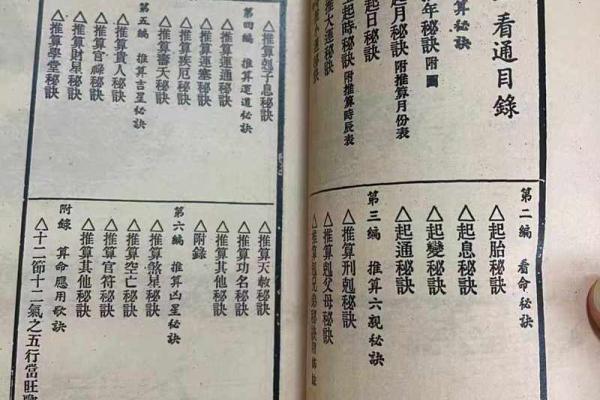 看通目錄
算秘訣
年秘訣 附圖
起月秘訣 附推算月份表
起日秘訣
起時秘訣 附推算時辰表
推大運秘訣
第二編 看命秘訣
△起胎秘訣
△起息秘訣
△起變秘訣
△起通秘訣
第三編 推算六親秘訣
△推算刑剋秘訣
△推算剋父母秘訣
△推算剋兄弟秘訣
△推算剋子息秘訣
第四編 推算運道秘訣
△推算運通秘訣
△推算運塞秘訣
△推算疾厄秘訣
△推算壽夭秘訣
第五編 推算吉星秘訣
△推算貴人秘訣
△推算官祿秘訣
△推算財星秘訣
△推算學堂秘訣
△推算天赦秘訣
△推算功名秘訣
△推算其他秘訣
△附錄
第六編 推算凶星秘訣
△推算煞星秘訣
△推算空亡秘訣
△推算官符秘訣
△推算其他秘訣
附錄 算命應用歌訣
△十二節十二氣之五行當旺